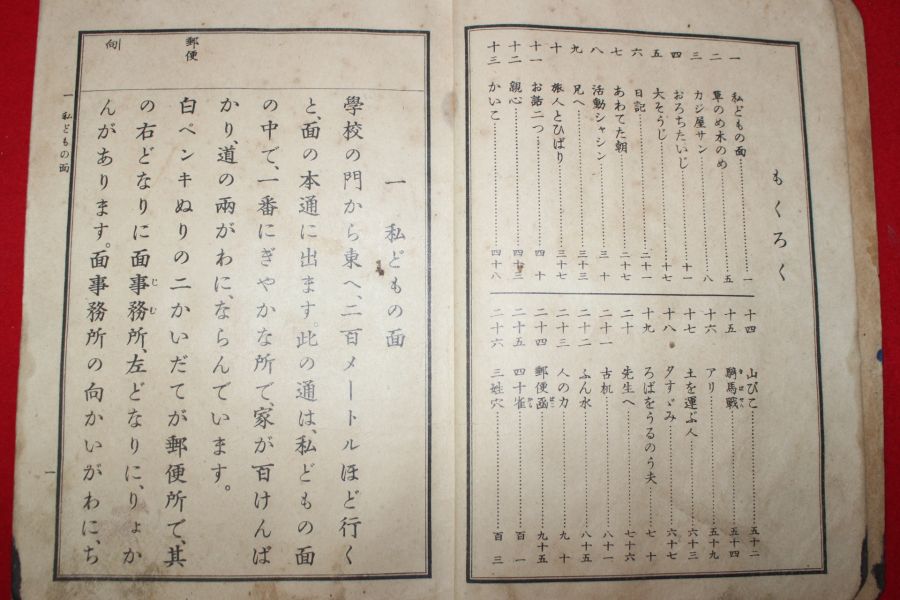 もくろく
一 私どもの面 一
二 草のめ木のめ 五
三 カジ屋サン 八
四 おろちたいじ 十一
五 大そうじ 十七
六 日記 二十一
七 あわてた朝 二十七
八 活動シャシン 三十
九 兄へ 三十三
十 旅人とひばり 三十七
十一 お話二つ 四十
十二 親心 四十三
十三 かいこ 四十八
十四 山びこ 五十二
十五 騎馬戰 五十四
十六 アリ 五十九
十七 土を運ぶ人 六十三
十八 夕すゞみ 六十七
十九 ろばをうるのう夫 七十
二十 先生へ 七十六
二十一 古机 八十一
二十二 ふん水 八十五
二十三 人の力 九十
二十四 郵便函 九十五
二十五 四十雀 百一
二十六 三姓穴 百三
郵便
向
一 私どもの面
學校の門から東へ、二百メートルほど行く
と、面の本通に出ます。此の通は、私どもの面
の中で、一番にぎやかな所で、家が百けんば
かり、道の兩がわに、ならんでいます。
白ペンキぬりの二かいだてが郵便所で、其
の右どなりに面事務所、左どなりに、りょか
んがあります。面事務所の向かいがわに、ち
一 私どもの面
一